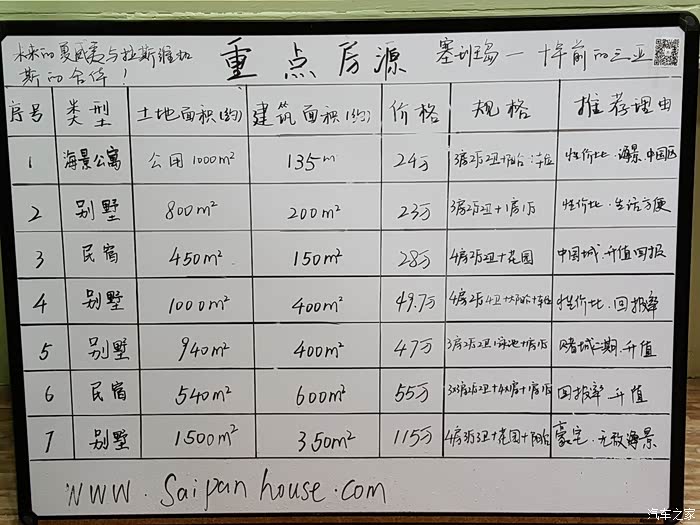 未来的夏威夷与拉斯维加
斯的合体！
重点房源
塞班岛一十年前的三亚
序号 类型 土地面积(约) 建筑面积(约) 价格 规格 推荐理由
1 海景公寓 公用1000m² 135m 24万 3房2厅2卫+阳台 性价比.海景.中国区
2 别墅 800m² 200m² 23万 3房2厅2卫+1房1厅 性价比.生活方便
3 民宿 450m² 150m² 28万 4房2厅2卫+花园 中国城.升值回报
4 别墅 1000m² 400m² 49.7万 4房2厅4卫+大阳台+车位 性价比.回报率
5 别墅 940m² 400m² 47万 3房2厅2卫+泳池+1房1厅 赌城二期.升值
6 民宿 540m² 600m² 55万 回报率.升值
7 别墅 1500m² 350m² 115万 4房3厅3卫+花园+阳台 豪宅.无敌海景
www.Saipanhouse.com
汽车之家